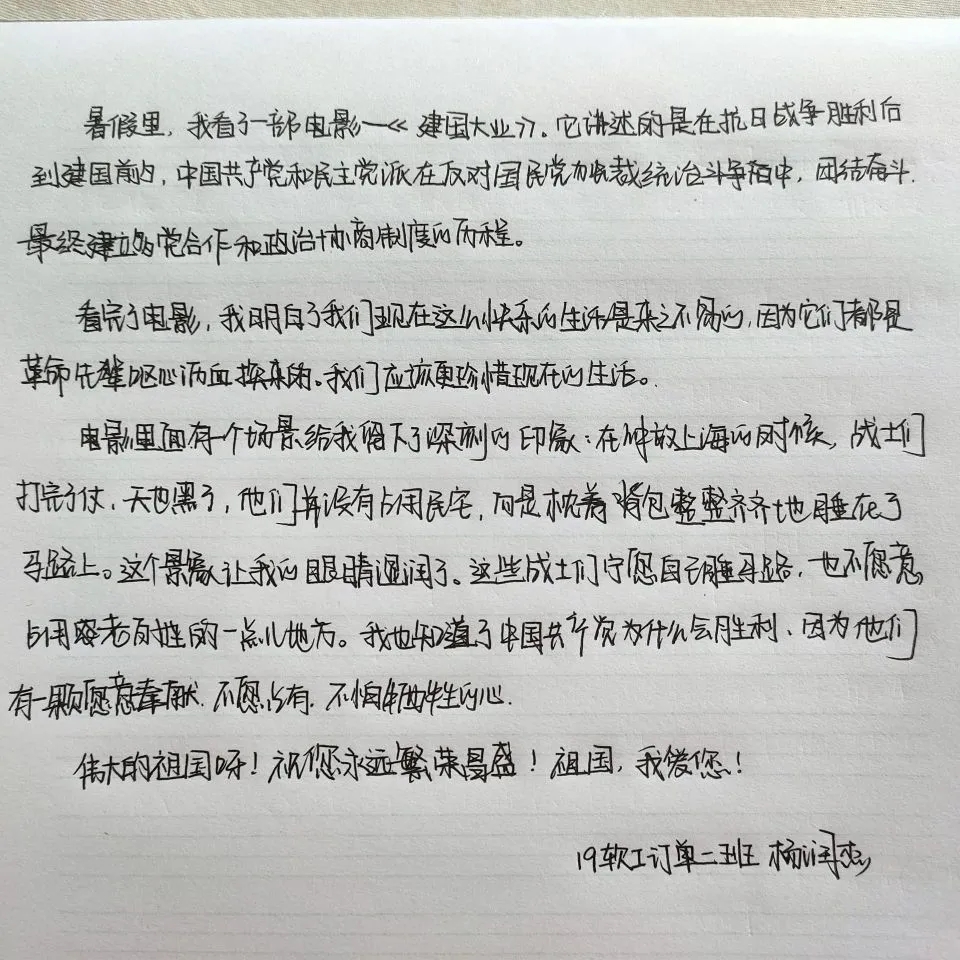 暑假里，我看了一部电影—《建国大业》。它讲述的是在抗日战争胜利后
到建国前夕，中国共产党和民主党派在反对国民党独裁统治斗争中，团结奋斗.
最终建立的党合作和政治协商制度的历程。
看完了电影，我明白了我们现在这么快乐的生活是来之不易的，因为它们都是
革命先辈呕心沥血换来的。我们应该更珍惜现在的生活。
电影里面有一个场景给我留下了深刻的印象：在解放上海的时候，战士们
打完了仗，天也黑了，他们并没有占用民宅，而是枕着背包整整齐齐地睡在了
马路上。这个景象让我的眼睛湿润了。这些战士们宁愿自己睡马路，也不愿意
占用老百姓的一点儿地方。我也知道了中国共产党为什么会胜利、因为他们
有一颗愿意奉献.不愿占有.不怕牺牲的心.
伟大的祖国呀！祝您永远繁荣昌盛！祖国，我爱您！
19软工订单二班 杨润杰